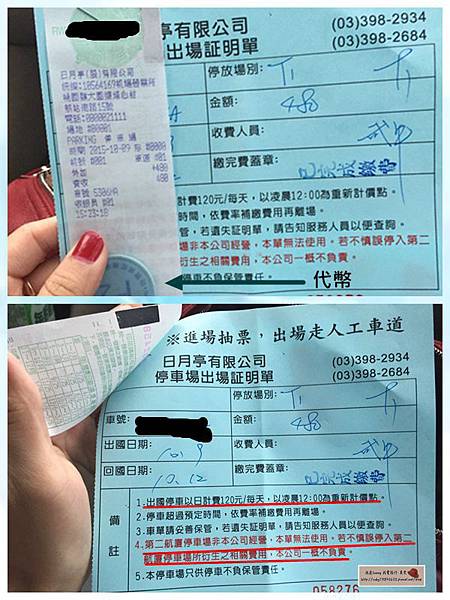 亭有限公司
出場証明單
(03)398-2934
(03)398-2684
停放場別:
T1
金額:
480
收費人員:
繳完費蓋章:
已完成繳費
日月亭(股)有限公司
電話:0000021111
場地 #00001
PARKING 停車場
時間 2015-10-09
+480
480
車號 5306WA
收銀員 #01
15:23:18
計費120元/每天，以凌晨12:00為重新計價點。
時間，依費率補繳費用再離場。
，若遺失証明單，請告知服務人員以便查詢。
車場非本公司經營，本單無法使用。若不慎誤停入第二
衍生之相關費用，本公司一概不負責。
停車不負保管責任。
代幣
※進場抽票，出場走人工車道
日月亭有限公司
停車場出場証明單
(03)398-2934
(03)398-2684
停放場別:
T1
車號:
金額:
480
出國日期:
10.9
收費人員:
回國日期:
10.12
繳完費蓋章:
已完成繳費
備註
1.出國停車以日計費120元/每天，以凌晨12:00為重新計價點。
2.停車超過預定時間，依費率補繳費用再離場。
3.車單請妥善保管，若遺失証明單，請告知服務人員以便查詢。
4.第二航廈停車場非本公司經營，本單無法使用。若不慎誤停入第二
航廈停車場所衍生之相關費用，本公司一概不負責。
5.本停車場只供停車不負保管責任。
058276